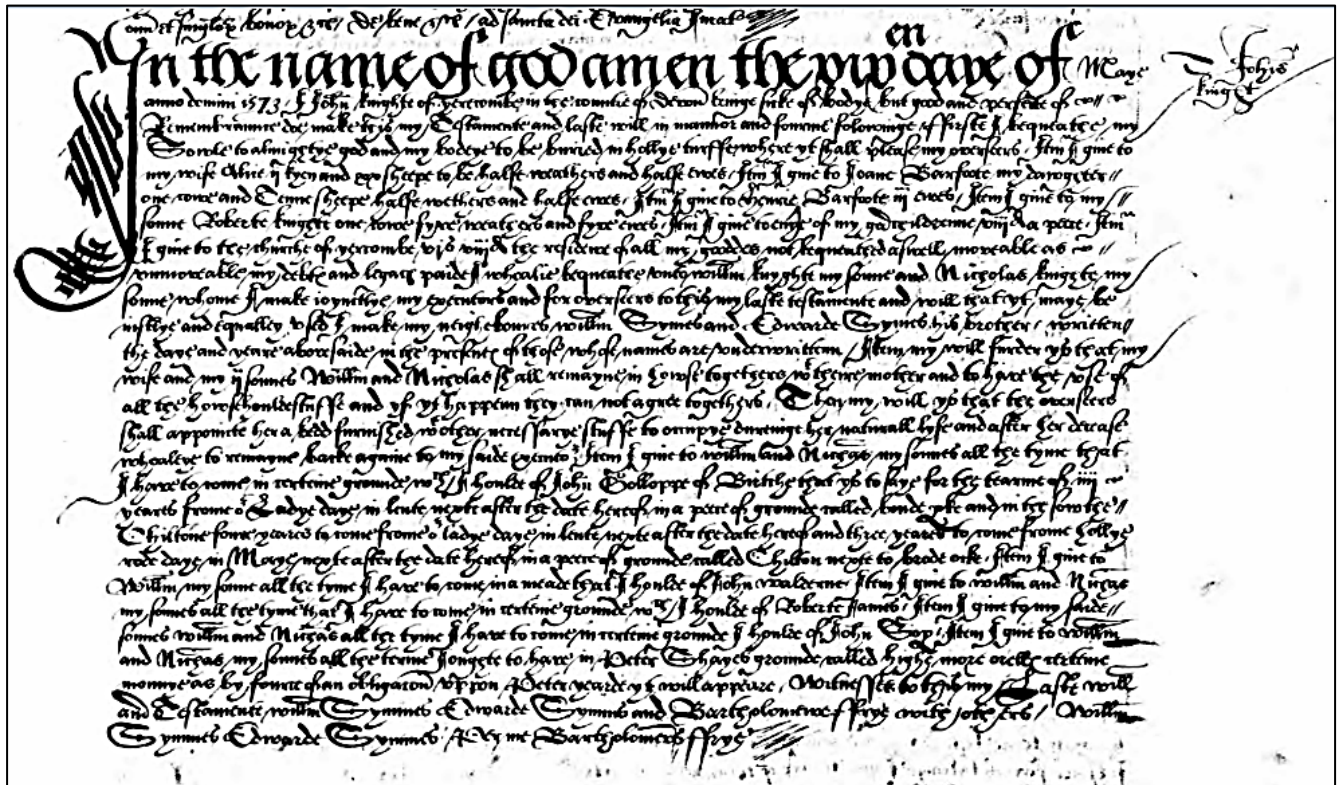 bonor &c de bene &c ad sancta dei Evangelia Jurat
In the name of god amen the xixen daye of Maye
Johis Knight
anno domini 1573. I John Knighte of yercombe in the countie of Devon beinge sicke of bodye but good and perfecte of
Remembraunce doe make this my Testamente and laste will in mannor and fourme folowinge ffirste I bequeathe my
Sowle to almightye god and my bodeye to be buried in hollye turffe where yt shall please my overseers. Itm I give to
my wife Alice ij kyen and xxx sheepe to be halfe weathers and halfe ewes. Itm I give to Joane Barfoote my dawghter
one cowe and Tenne sheepe halfe wethers and halfe ewes. Itm I give to Henrie Barfoote iij ewes. Item I give to my
sonne Roberte Knighte one cowe fyve weathers and fyve ewes. Itm I give to everye of my godchildrenne viijd a peece. Itm
I give to the churche of yercombe vjs viijd the residewe of all my gooddes not bequeathed aswell moveable as
unmoveable my debts and legacs paide I whealie bequeathe unto Willm Knyghte my sonne and Nicholas Knighte my
sonne whome I make ioyntlye my executors and for overseers to this my laste testamente and will that yt maye be
iustlye and equalley used I make my neigheboures willm Symes and Edwarde Symes his brother. written
the daye and yeare abovesaide in the presentes of those whose names are underwrittenn. Item my will furder ys that my
wife and my ij sonnes Willm and Nicholas shall remayne in howse togethers wth theire mother and to have the use of
all the howsehouldestuffe and yf yt happenn they can not agree togethers. Then my will ys that the overseers
shall appointe her a bedd furnished wth other necessarye stuffe to occupye duringe her naturall lyfe and after her decease
whealeye to remayne backe againe to my saide executors. Item I give to willm and Nichas my sonnes all the tyme that
I have to come in certeine grounde wch I houlde of John Golloppe of Birtche that ys to saye for the tearme of iiij
yeares frome or Ladye daye in lente nexte after the date hereof in a peece of grounde called and in the
Chiltone fowre yeares to come frome or ladye daye in lente nexte after the date hereof and three yeares to come frome hollye
rode daye in Maye nexte after the date hereof in a peece of grounde called Chilton nexte to brode Itm I give to
Willm my sonne all the tyme I have to come in a meade that I houlde of John walderne. Item I give to willm and Nichas
my sonnes all the tyme that I have to come in certeine grounde wch I houlde of Roberte James. Item I give to my saide
sonnes willm and Nichas all the tyme I have to come in certeine grounde I houlde of John Item I give to willm
and Nichas my sonnes all the terme I oughte to have in Peter Shayes grounde called highe more orells certeine
monnye as by fource of an obligacon uppon Peter yearde yt will appeare. Witnesses to this my Laste will
and Testamente willm Symmes Edwarde Symmes and Bartholomewe ffrye with others. Willm
Symmes Edwarde Symmes. Per me Bartholomew ffrye